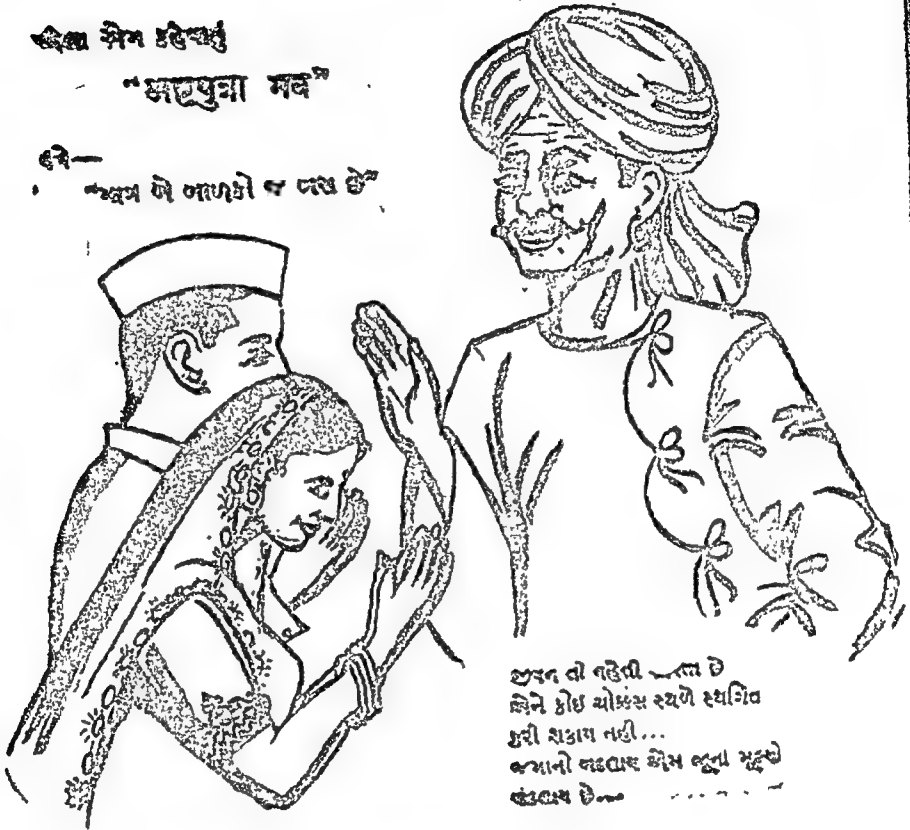 પહેલા એમ કહેવાતું
"અષ્ટપુત્રા ભવ"
હવે—
"માત્ર બે બાળકો જ બસ છે"
જીવન તો વહેતી છે
એને કોઈ ચોક્કસ સ્થળે સ્થગિત
કરી શકાય નહી...
જમાનો બદલાય એમ જૂના મૂલ્યો
બદલાય છે